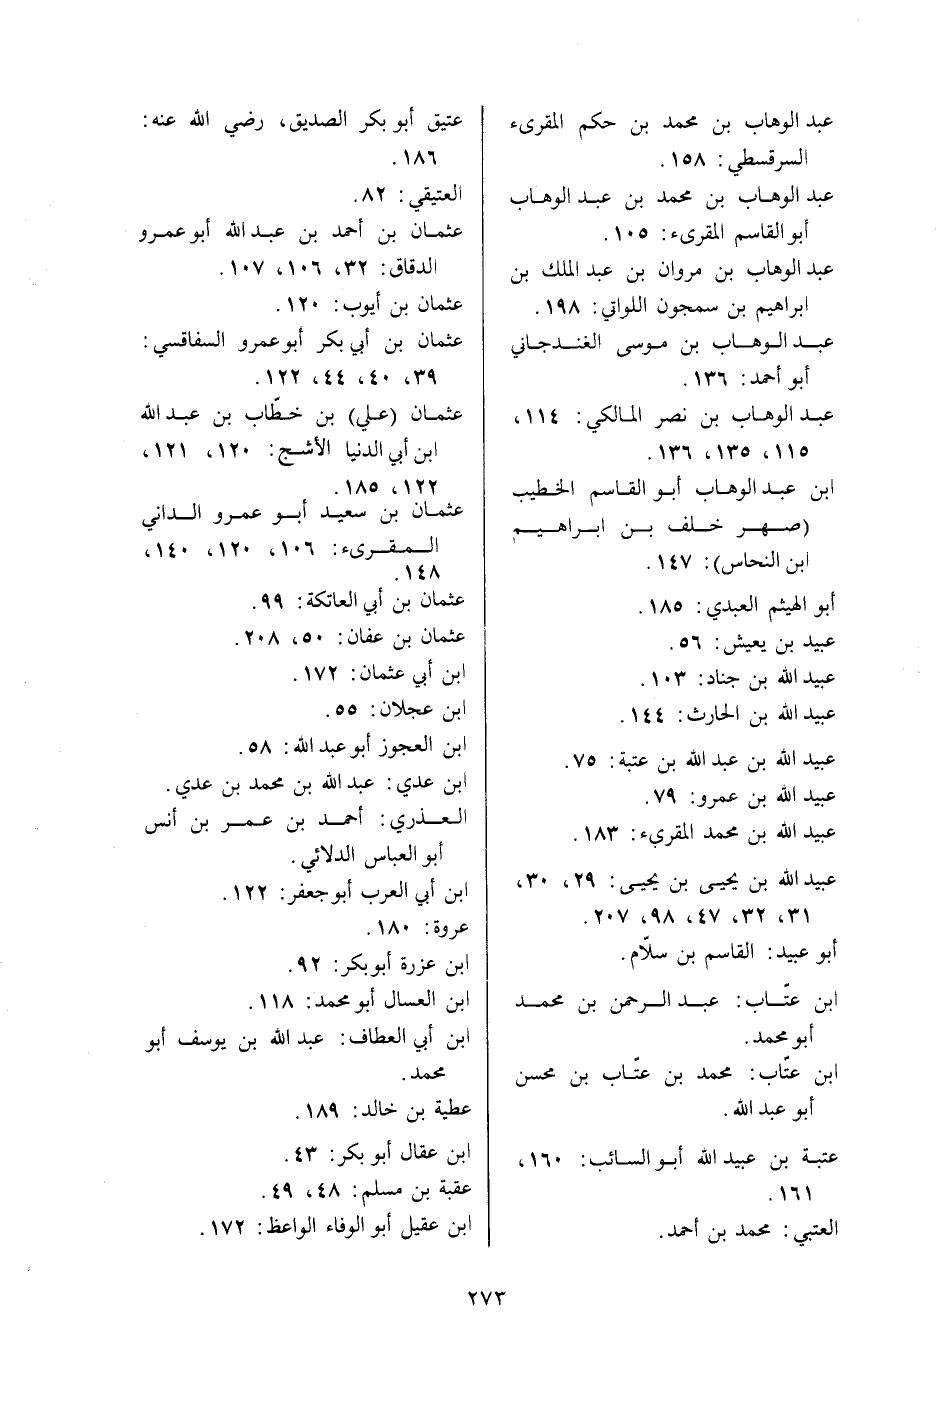 عبد الوهاب بن محمد بن حكم المقرىء
السرقسطي: ١٥٨.
عبد الوهاب بن محمد بن عبد الوهاب
أبو القاسم المقرىء: ١٠٥.
عبد الوهاب بن مروان بن عبد الملك بن
ابراهيم بن سمجون اللواتي: ١٩٨.
عبد الوهاب بن موسى الغندجاني
أبو أحمد: ١٣٦.
عبد الوهاب بن نصر المالكي: ١١٤،
١١٥، ١٣٥، ١٣٦.
ابن عبد الوهاب أبو القاسم الخطيب
(صهر خلف بن ابراهيم
ابن النحاس): ١٤٧.
أبو الهيثم العبدي: ١٨٥.
عبيد بن يعيش: ٥٦.
عبيد الله بن جناد: ١٠٣.
عبيد الله بن الحارث: ١٤٤.
عبيد الله بن عبد الله بن عتبة: ٧٥.
عبيد الله بن عمرو: ٧٩.
عبيد الله بن محمد المقرىء: ١٨٣.
عبيد الله بن يحيى بن يحيى: ٢٩، ٣٠،
٣١، ٣٢، ٤٧، ٩٨، ٢٠٧.
أبو عبيد: القاسم بن سلّام.
ابن عتّاب: عبد الرحمن بن محمد
أبو محمد.
ابن عتّاب: محمد بن عتّاب بن محسن
أبو عبد الله.
عتبة بن عبيد الله أبو السائب: ١٦٠،
١٦١.
العتبي: محمد بن أحمد.
عتيق أبو بكر الصديق، رضي الله عنه:
١٨٦.
العتيقي: ٨٢.
عثمان بن أحمد بن عبد الله أبو عمرو
الدقاق: ٣٢، ١٠٦، ١٠٧.
عثمان بن أيوب: ١٢٠.
عثمان بن أبي بكر أبو عمرو السفاقسي:
٣٩، ٤٠، ٤٤، ١٢٢.
عثمان (علي) بن خطّاب بن عبد الله
ابن أبي الدنيا الأشج: ١٢٠، ١٢١،
١٢٢، ١٨٥.
عثمان بن سعيد أبو عمرو الداني
المقرىء: ١٠٦، ١٢٠، ١٤٠،
١٤٨.
عثمان بن أبي العاتكة: ٩٩.
عثمان بن عفان: ٥٠، ٢٠٨.
ابن أبي عثمان: ١٧٢.
ابن عجلان: ٥٥.
ابن العجوز أبو عبد الله: ٥٨.
ابن عدي: عبد الله بن محمد بن عدي.
العذري: أحمد بن عمر بن أنس
أبو العباس الدلائي.
ابن أبي العرب أبو جعفر: ١٢٢.
عروة: ١٨٠.
ابن عزرة أبو بكر: ٩٢.
ابن العسال أبو محمد: ١١٨.
ابن أبي العطاف: عبد الله بن يوسف أبو
محمد.
عطية بن خالد: ١٨٩.
ابن عقال أبو بكر: ٤٣.
عقبة بن مسلم: ٤٨، ٤٩.
ابن عقيل أبو الوفاء الواعظ: ١٧٢.
٢٧٣